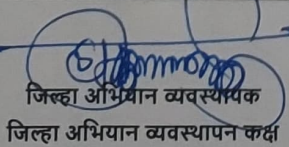 जिल्हा अभियान व्यवस्थापक
जिल्हा अभियान व्यवस्थापन कक्ष